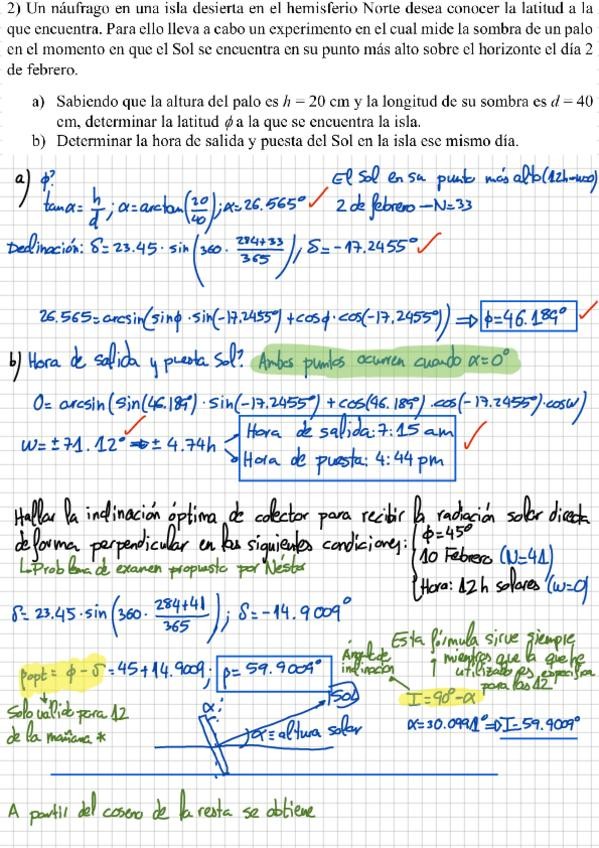 2) Un náufrago en una isla desierta en el hemisferio Norte desea conocer la latitud a la
que encuentra. Para ello lleva a cabo un experimento en el cual mide la sombra de un palo
en el momento en que el Sol se encuentra en su punto más alto sobre el horizonte el día 2
de febrero.
a) Sabiendo que la altura del palo es h = 20 cm y la longitud de su sombra es d = 40
cm, determinar la latitud ϕ a la que se encuentra la isla.
b) Determinar la hora de salida y puesta del Sol en la isla ese mismo día.
a) ϕ?
El Sol en su punto más alto (12h→ω=0)
tanα = h/d ; α = arctan(20/40) ; α = 26.565° ✓
2 de febrero → N=33
Declinación: δ = 23.45 · sin(360 · (284+33)/365), δ = -17.2455° ✓
26.565 = arcsin(sinϕ · sin(-17.2455°) + cosϕ · cos(-17.2455°)) ⇒ ϕ = 46.189° ✓
b) Hora de salida y puesta Sol? Ambos puntos ocurren cuando α=0°
0 = arcsin(sin(46.189°) · sin(-17.2455°) + cos(46.189°) · cos(-17.2455°) · cosω)
ω = ±71.12° ⇒ ± 4.74h ✓
Hora de salida: 7:15 am
Hora de puesta: 4:44 pm ✓
Hallar la inclinación óptima de colector para recibir la radiación solar directa
de forma perpendicular en las siguientes condiciones:
ϕ = 45°
10 Febrero (N=41)
Hora: 12h solares (ω=0)
↳ Problema de examen propuesto por Néstor
δ = 23.45 · sin(360 · (284+41)/365) ; δ = -14.9009°
βopt = ϕ - δ = 45 + 14.9009 ; β = 59.9009°
Solo válido para 12
de la mañana *
Ángulo de
inclinación
Esta fórmula sirve siempre
mientras que la que he
utilizado es específica
para las 12
I = 90° - α
α = 30.0991° ⇒ I = 59.9009°
Sol
α'
α = altura solar
A partir del coseno de la resta se obtiene